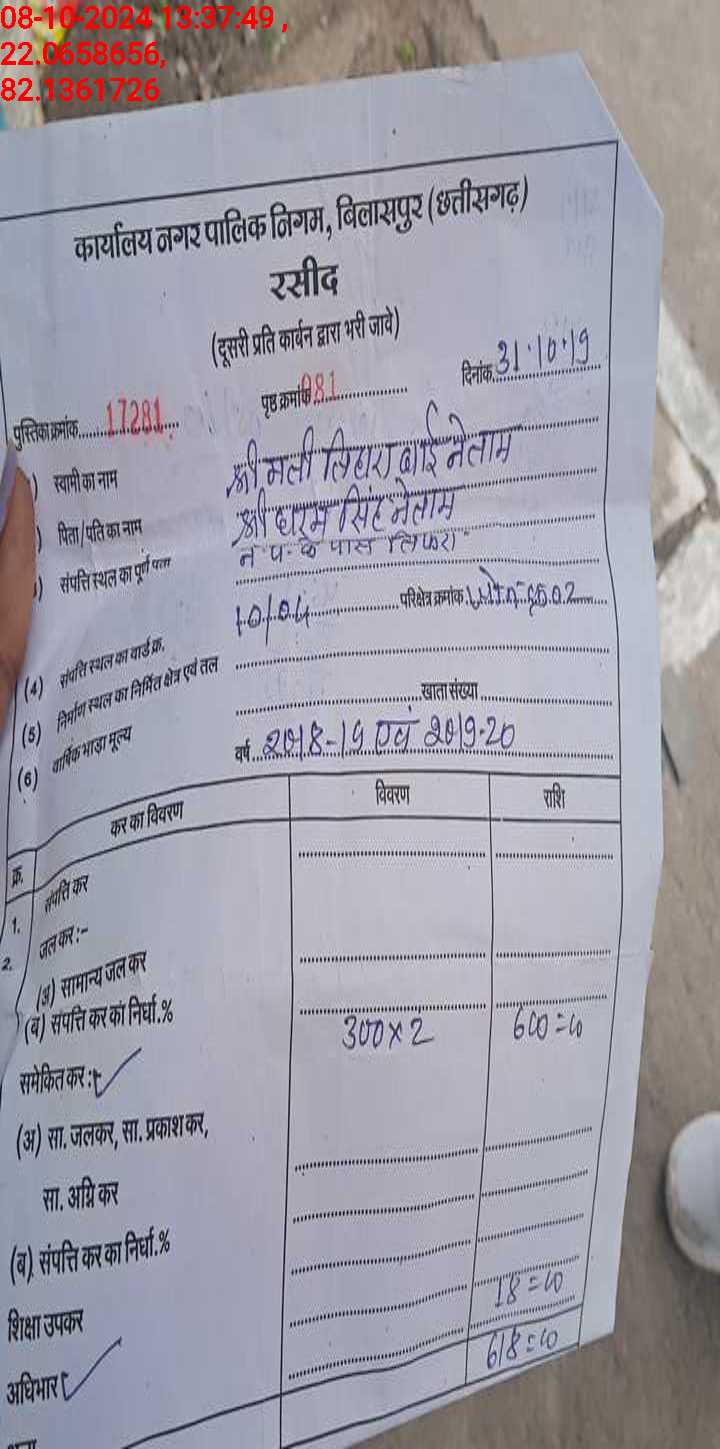 08-10-2024 13:37:49 ,
22.0658656,
82.1361726
कार्यालय नगर पालिक निगम, बिलासपुर (छत्तीसगढ़)
रसीद
(दूसरी प्रति कार्बन द्वारा भरी जावे)
पुस्तिका क्रमांक 17281 पृष्ठ क्रमांक 081 दिनांक 31.10.19
) स्वामी का नाम श्रीमती तिहारा बाई नेताम
) पिता/पति का नाम श्री धरम सिंह नेताम
) संपत्ति स्थल का पूर्ण पता न. प. के पास तिफरा
(4) संपत्ति स्थल का वार्ड क्र. 10/04 परिक्षेत्र क्रमांक
(5) निर्माण स्थल का निर्मित क्षेत्र एवं तल
(6) वार्षिक भाड़ा मूल्य खाता संख्या
वर्ष 2018-19 एवं 2019-20
क्र. कर का विवरण विवरण राशि
1. संपत्ति कर
2. जल कर :-
(अ) सामान्य जल कर
(ब) संपत्ति कर का निर्धा.%
समेकित कर : 300×2 600=00
(अ) सा. जलकर, सा. प्रकाश कर,
सा. अग्नि कर
(ब) संपत्ति कर का निर्धा.%
शिक्षा उपकर
अधिभार 18=00
618=00